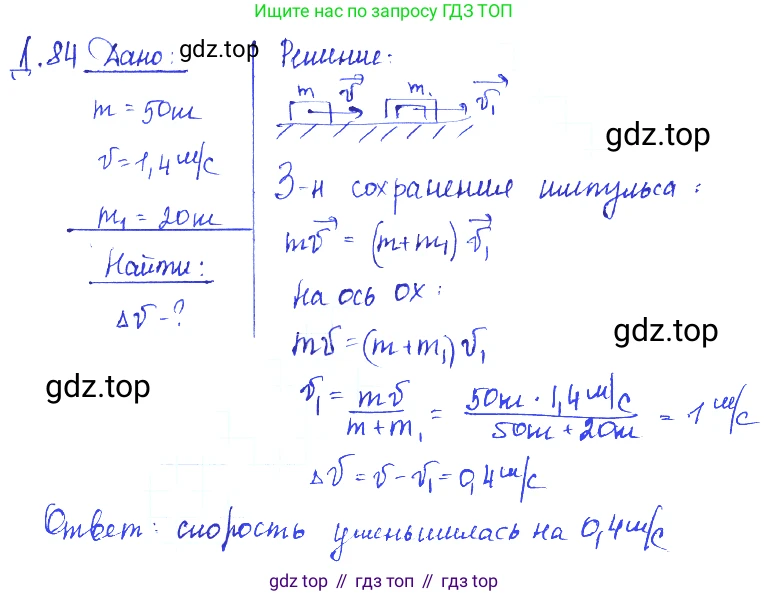 Ищите нас по запросу ГДЗ ТОП
Д.84 Дано:
gdz.top
m = 50т
v = 1,4 м/с
m₁ = 20т
Найти:
Δv - ?
gdz.top
Решение:
m v⃗ m₁ v⃗₁
gdz.top
З-н сохранения импульса:
mv⃗ = (m+m₁) v⃗₁
На ось ОХ:
mv = (m+m₁) v₁
gdz.top
v₁ = mv / m+m₁ = 50т · 1,4 м/с / 50т + 20т = 1 м/с
Δv = v - v₁ = 0,4 м/с
Ответ: скорость уменьшилась на 0,4 м/с
gdz top // гдз топ // gdz top